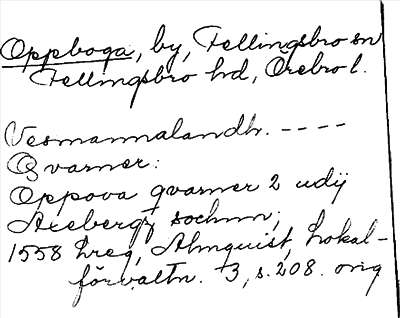 Oppboga, by, Fellingsbro sn
Fellingsbro hd, Örebro l.
Vesmannalandh. ----
Qvarner:
Oppova qvarner 2 udij
Axebergz sochnn;
1558 hreg, Almquist, Lokal-
förvaltn. 3, s. 208. orig